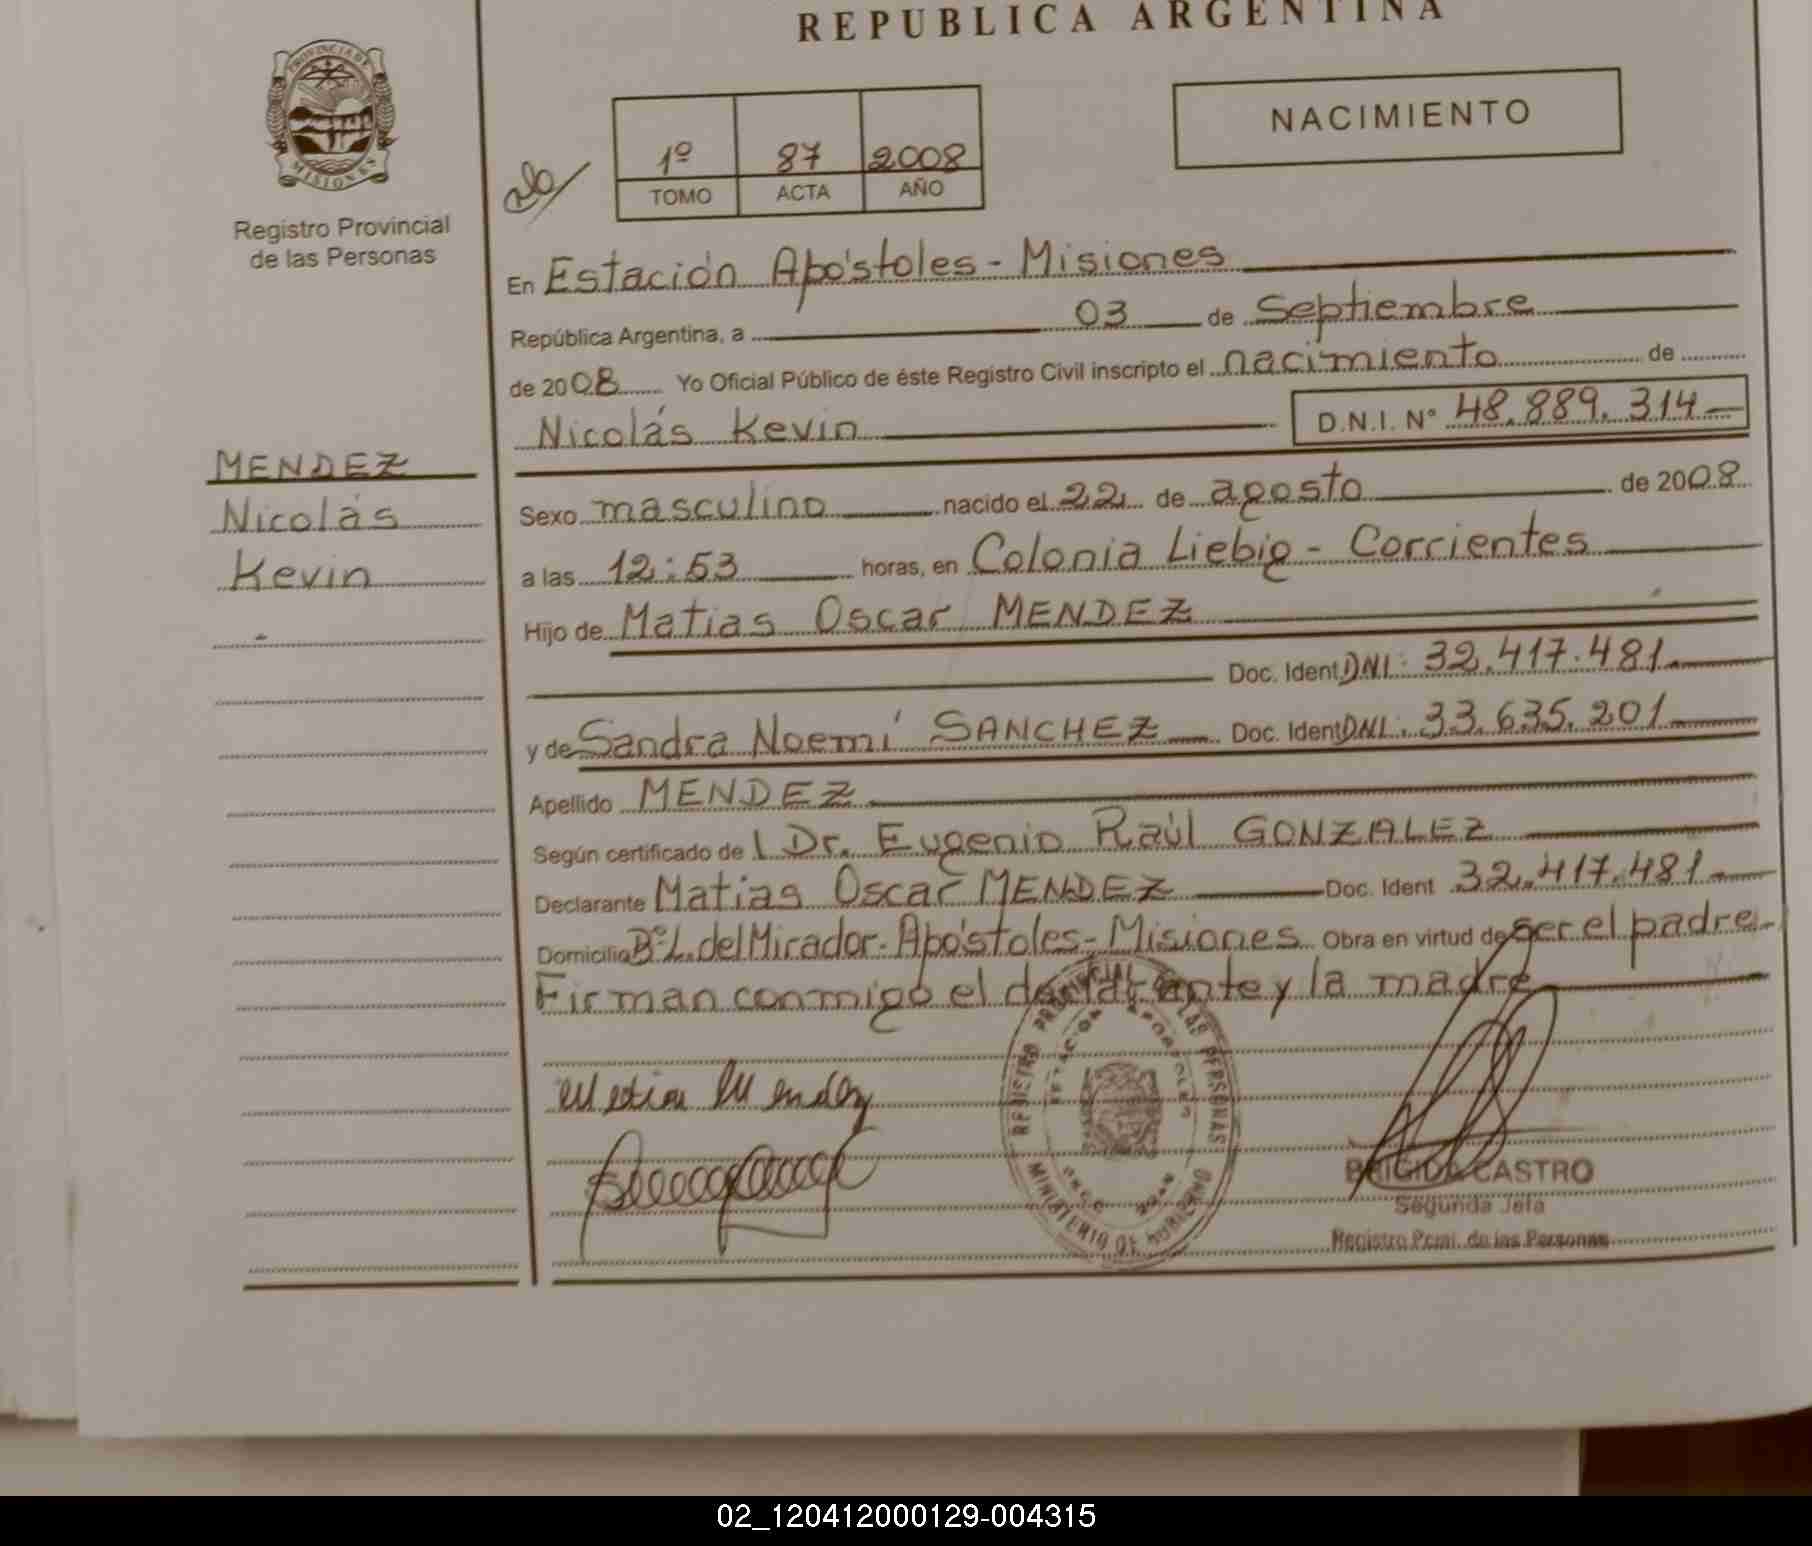 REPUBLICA ARGENTINA
PROVINCIA DE
MISIONES
Registro Provincial
de las Personas
NACIMIENTO
1º 87 2008
TOMO ACTA AÑO
En Estación Apóstoles - Misiones
República Argentina, a 03 de Septiembre
de 2008 Yo Oficial Público de éste Registro Civil inscripto el nacimiento de
Nicolás Kevin D.N.I. N° 48.889.314
MENDEZ
Nicolás
Kevin
Sexo masculino nacido el 22 de agosto de 2008
a las 12:53 horas, en Colonia Liebig - Corrientes
Hijo de Matias Oscar MENDEZ
Doc. Ident DNI: 32.417.481
y de Sandra Noemí SANCHEZ Doc. Ident DNI: 33.635.201
Apellido MENDEZ
Según certificado de l Dr. Eugenio Raúl GONZALEZ
Declarante Matias Oscar MENDEZ Doc. Ident 32.417.481
Domicilio Bº L. del Mirador - Apóstoles - Misiones Obra en virtud de ser el padre
Firman conmigo el declarante y la madre
Matias Mendez
REGISTRO PROVINCIAL DE LAS PERSONAS
ESTACION APOSTOLES
MINISTERIO DE GOBIERNO
BRIGIDA CASTRO
Segunda Jefa
Registro Pcial. de las Personas
02_120412000129-004315